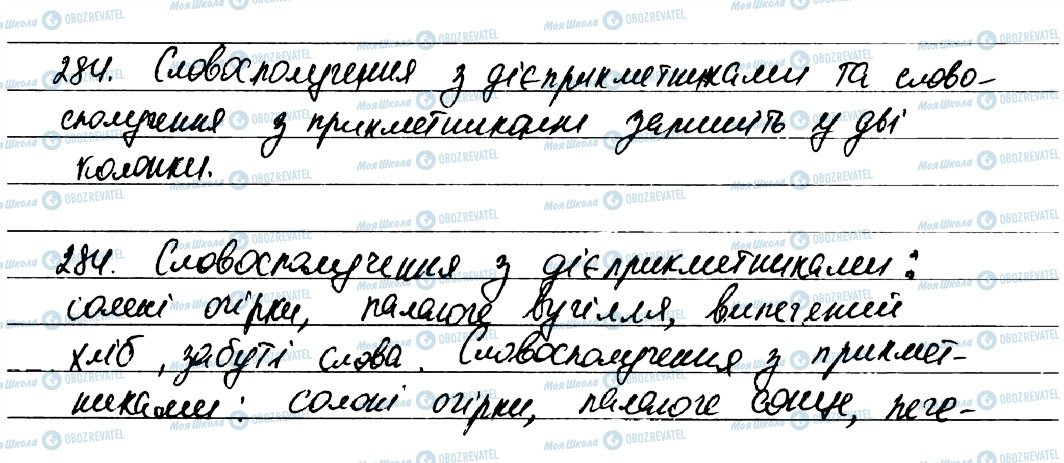 284. Словосполучення з дієприкметниками та слово-
сполучення з прикметниками запишіть у дві
колонки.
284. Словосполучення з дієприкметниками:
солені огірки, палаюче вугілля, випечений
хліб, забуті слова. Словосполучення з прикмет-
никами: солоні огірки, палаюче сонце, пече-